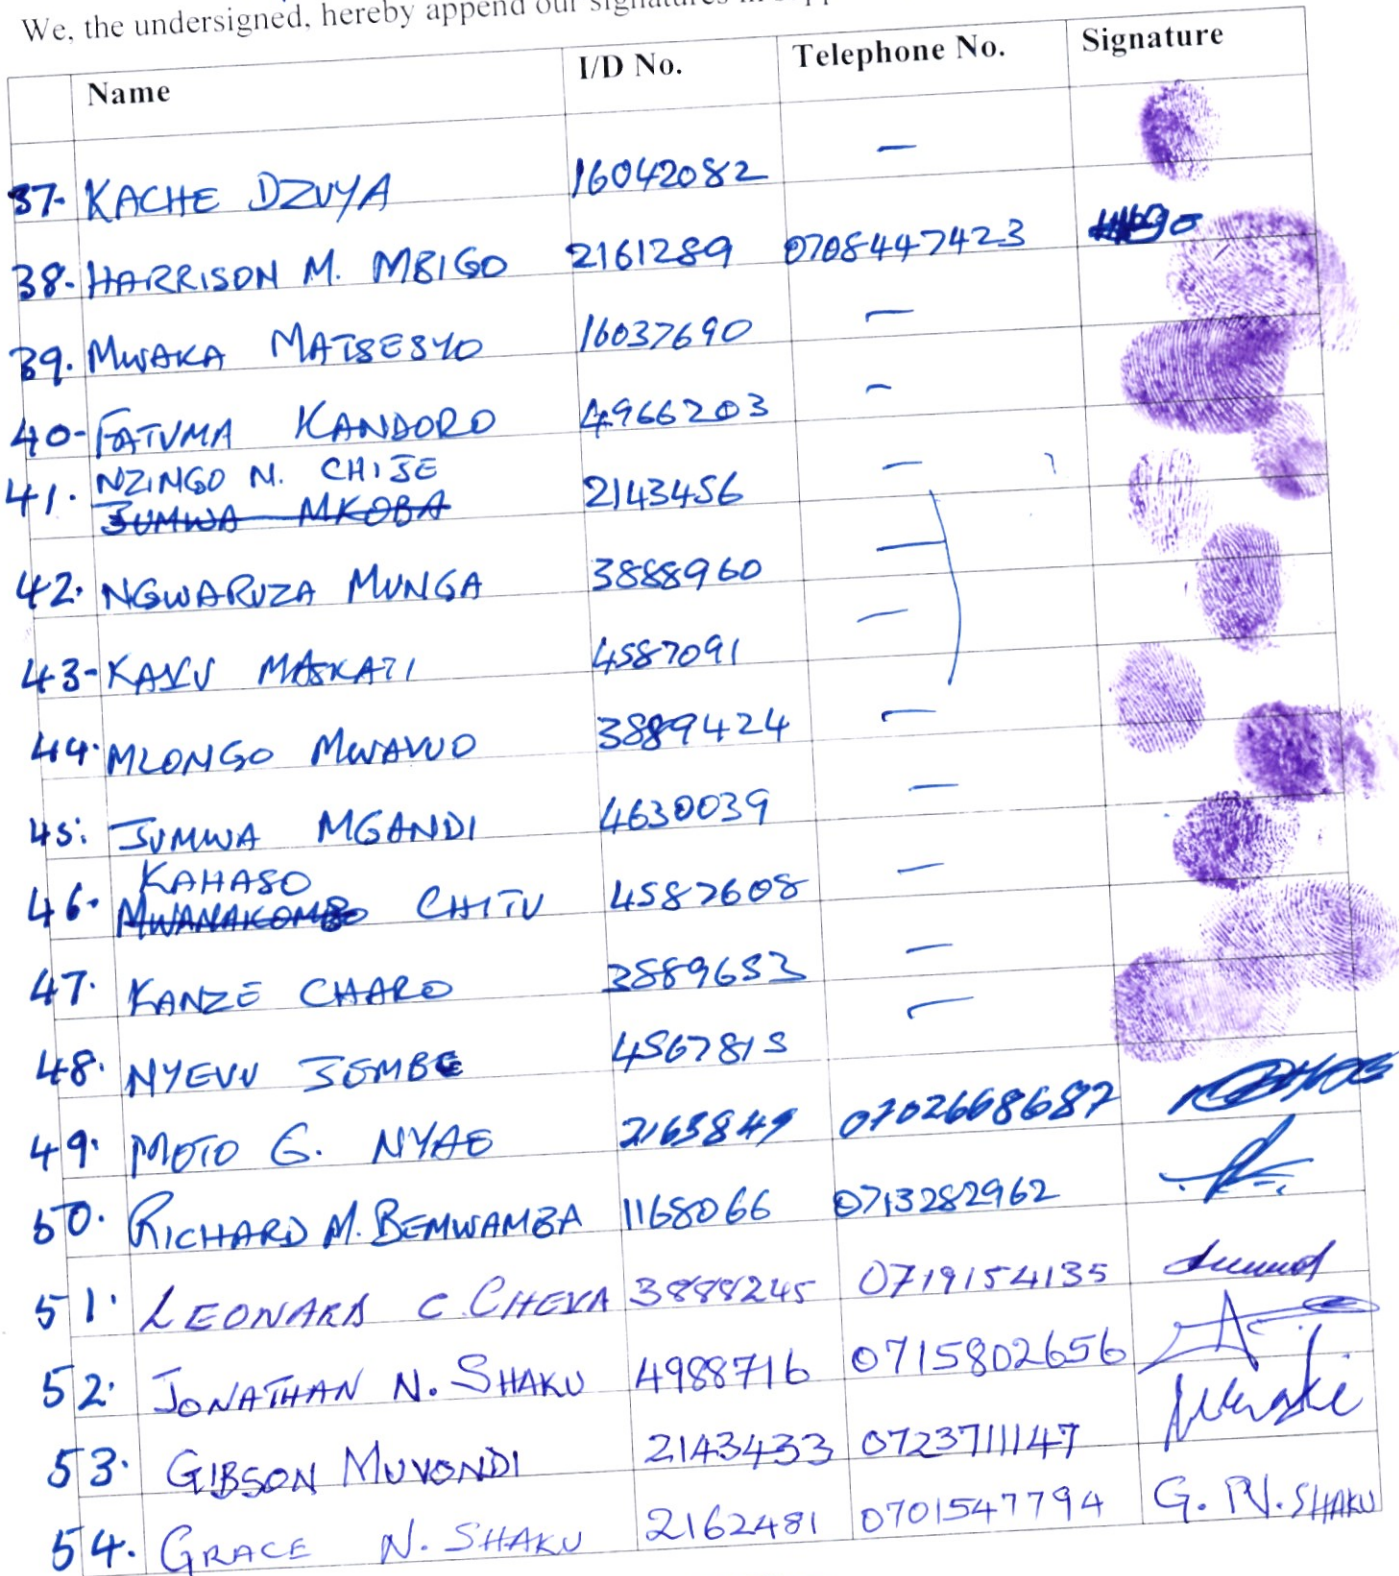 We, the undersigned, hereby append our signatures in supp
Name I/D No. Telephone No. Signature
37. KACHE DZUYA 16042082 —
38. HARRISON M. MBIGO 2161289 0708447423
39. MWAKA MATSESYO 16037690 —
40- FATUMA KANDORO 4966203 -
41. NZINGO N. CHIJE
JUMWA MKOBA 2143456 —
42. NGWARUZA MUNGA 3888960 —
43- KASKU MASKATI 4587091 —
44. MLONGO MWAVUO 3889424 —
45: JUMWA MGANDI 4630039 —
46. KAHASO
MWANAKOMBO CHITU 4587608 —
47. KANZE CHARO 3889653 —
48. NYEVU JOMBE 4567815 —
49. MOTO G. NYAE 2163849 0702668687
50. RICHARD M. BEMWAMBA 1168066 0713282962
51. LEONARD C. CHEVA 3888245 0719154135
52. JONATHAN N. SHAKU 4988716 0715802656
53. GIBSON MUVONDI 2143433 0723711147
54. GRACE N. SHAKU 2162481 0701547794 G. N. SHAKU